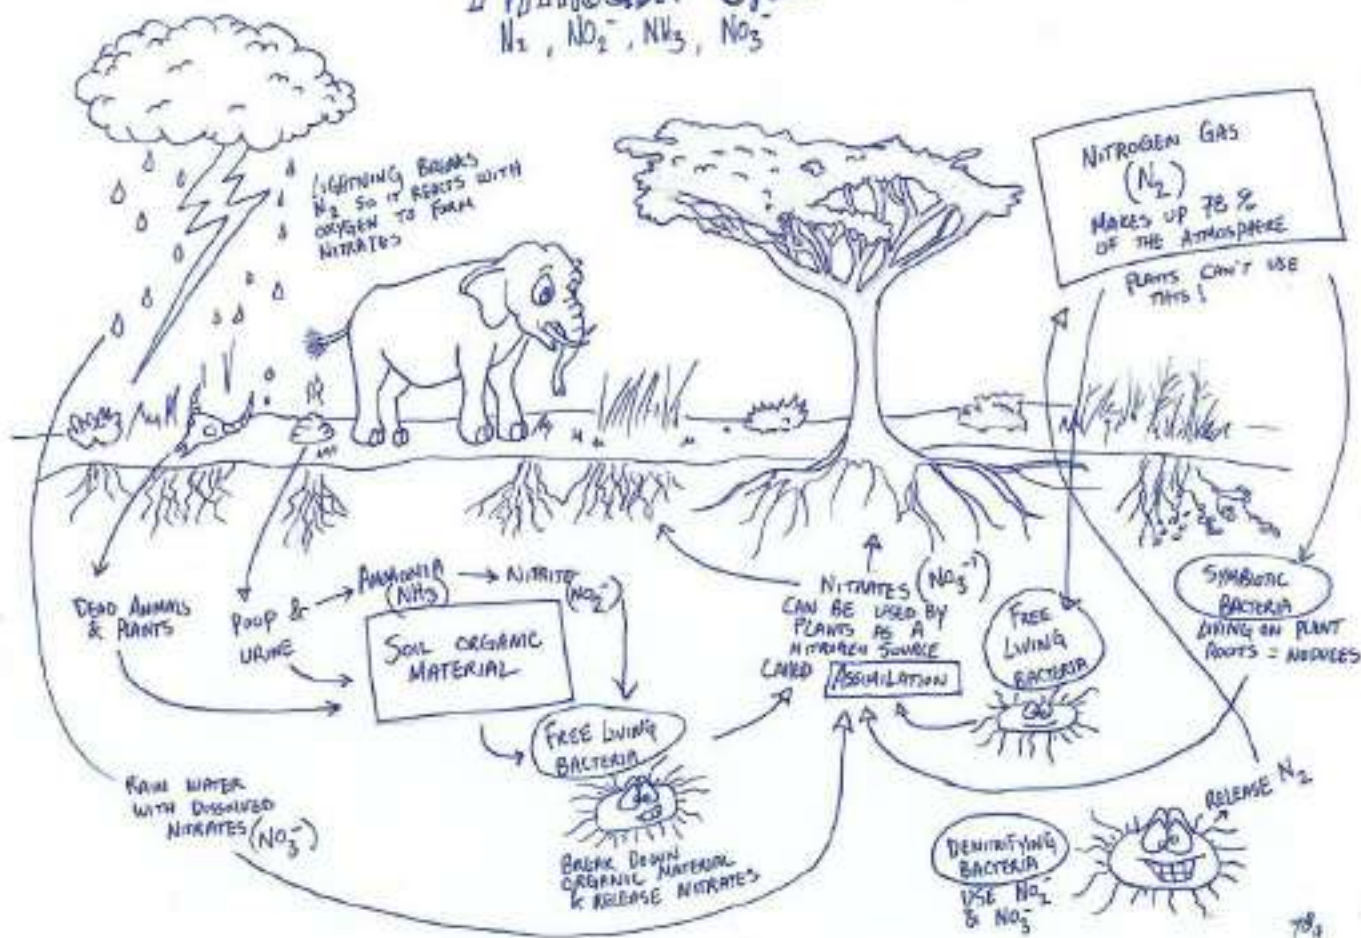 N₂, NO₂⁻, NH₃, NO₃⁻
LIGHTNING BREAKS
N₂ SO IT REACTS WITH
OXYGEN TO FORM
NITRATES
NITROGEN GAS
(N₂)
MAKES UP 78%
OF THE ATMOSPHERE
PLANTS CAN'T USE
THIS!
DEAD ANIMALS
& PLANTS
POOP &
URINE
AMMONIA
(NH3)
NITRITE
(NO₂⁻)
SOIL ORGANIC
MATERIAL
FREE LIVING
BACTERIA
BREAK DOWN
ORGANIC MATERIAL
& RELEASE NITRATES
RAIN WATER
WITH DISSOLVED
NITRATES (NO₃⁻)
NITRATES (NO₃⁻¹)
CAN BE USED BY
PLANTS AS A
NITROGEN SOURCE
CALLED ASSIMILATION
FREE
LIVING
BACTERIA
SYMBIOTIC
BACTERIA
LIVING ON PLANT
ROOTS = NODULES
RELEASE N₂
DENITRIFYING
BACTERIA
USE NO₂⁻
& NO₃⁻